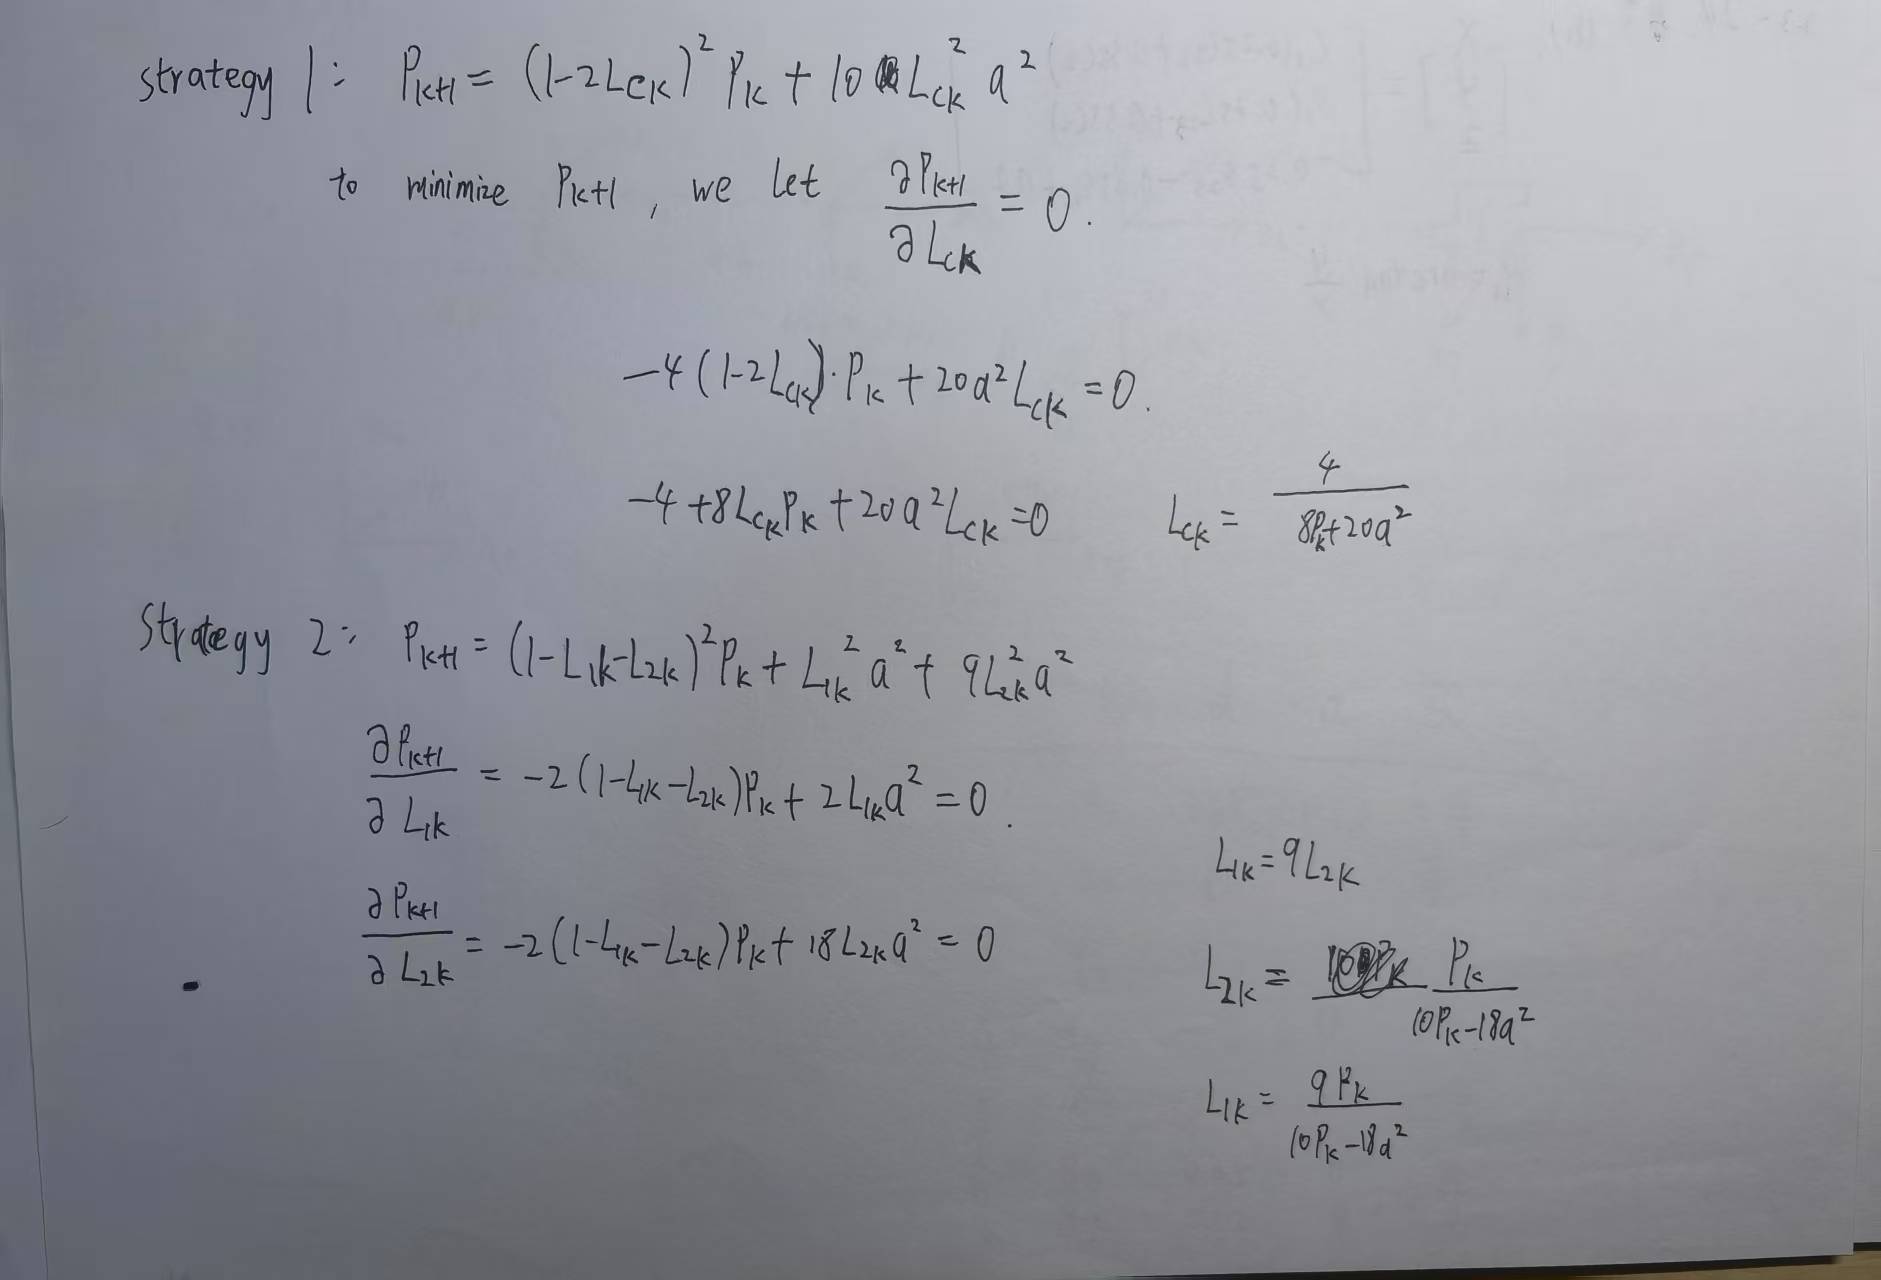 strategy 1: P_{k+1} = (1-2L_{ck})² P_k + 10 L_{ck}² a²
to minimize P_{k+1}, we let ∂P_{k+1}/∂L_{ck} = 0.
-4(1-2L_{ck})·P_k + 20a²L_{ck} = 0.
-4+8L_{ck}P_k + 20a²L_{ck} = 0    L_{ck} = 4/(8P_k+20a²)
Strategy 2: P_{k+1} = (1-L_{1k}-L_{2k})²P_k + L_{1k}² a² + 9L_{2k}² a²
∂P_{k+1}/∂L_{1k} = -2(1-L_{1k}-L_{2k})P_k + 2L_{1k}a² = 0.
L_{1k} = 9L_{2k}
∂P_{k+1}/∂L_{2k} = -2(1-L_{1k}-L_{2k})P_k + 18L_{2k}a² = 0
L_{2k} = P_k/(10P_k-18a²)
L_{1k} = 9P_k/(10P_k-18a²)